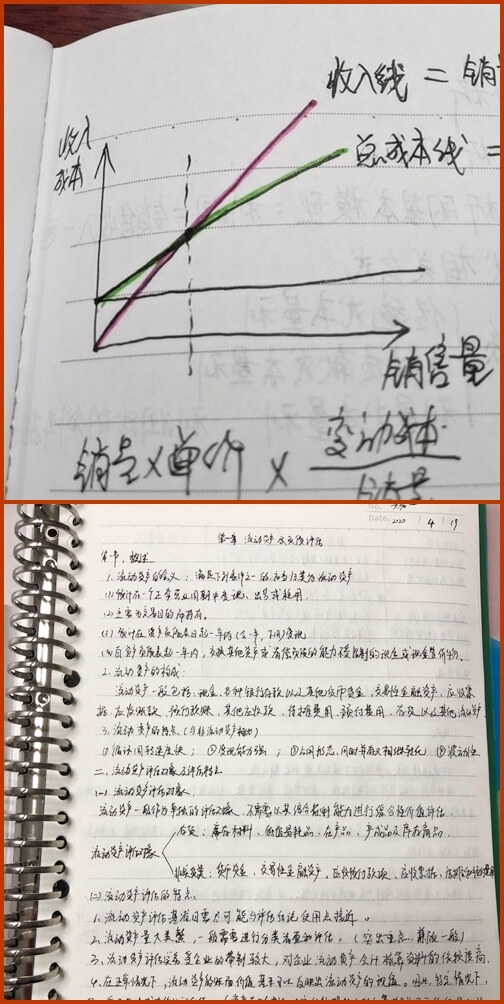 收入线 = 销
收入
成本
总成本线 =
销售量
销量×单价 × 变动成本
销量
Date. 2020 / 4 / 19
第一章 流动资产
第一节、概述
1. 流动资产的含义：满足下列条件之一的，应当归类为流动资产
(1)预计在一个正常营业周期中变现、出售或耗用。
(2)主要为交易目的而持有。
(3)预计在资产负债表日起一年内(含一年，下同)变现
(4)自资产负债表日起一年内，交换其他资产或清偿负债的能力不受限制的现金或现金等价物。
2. 流动资产的构成：
流动资产一般包括：现金、各种银行存款以及其他货币资金、交易性金融资产、应收票
据、应收账款、预付款项、其他应收款、待摊费用、预付费用、存货以及其他流动资产
3. 流动资产的特点(与非流动资产相比)
(1)循环周转速度快； ②变现能力强； ③占用形态，同时并存又相继转化 ④波动性
二、流动资产评估对象及评估特点
(一)流动资产评估对象
流动资产一般作为单独的评估对象，不需要以其综合获利能力进行综合性价值评估。
存货：库存材料、低值易耗品、在产品、产成品及库存商品。
流动资产评估对象
货币资金、交易性金融资产、应收预付款项、应收票据、
(二)流动资产评估的特点
1. 流动资产评估基准日要尽可能与评估结论使用点接近。
2. 流动资产量大类繁，一般需要进行分类清查和评估。
3. 流动资产评估受企业的牵制较大，对企业流动资产会计核算资料的依赖度高。
4. 在正常情况下，流动资产的账面价值基本可以反映出流动资产的现值。因此，特定情况下，